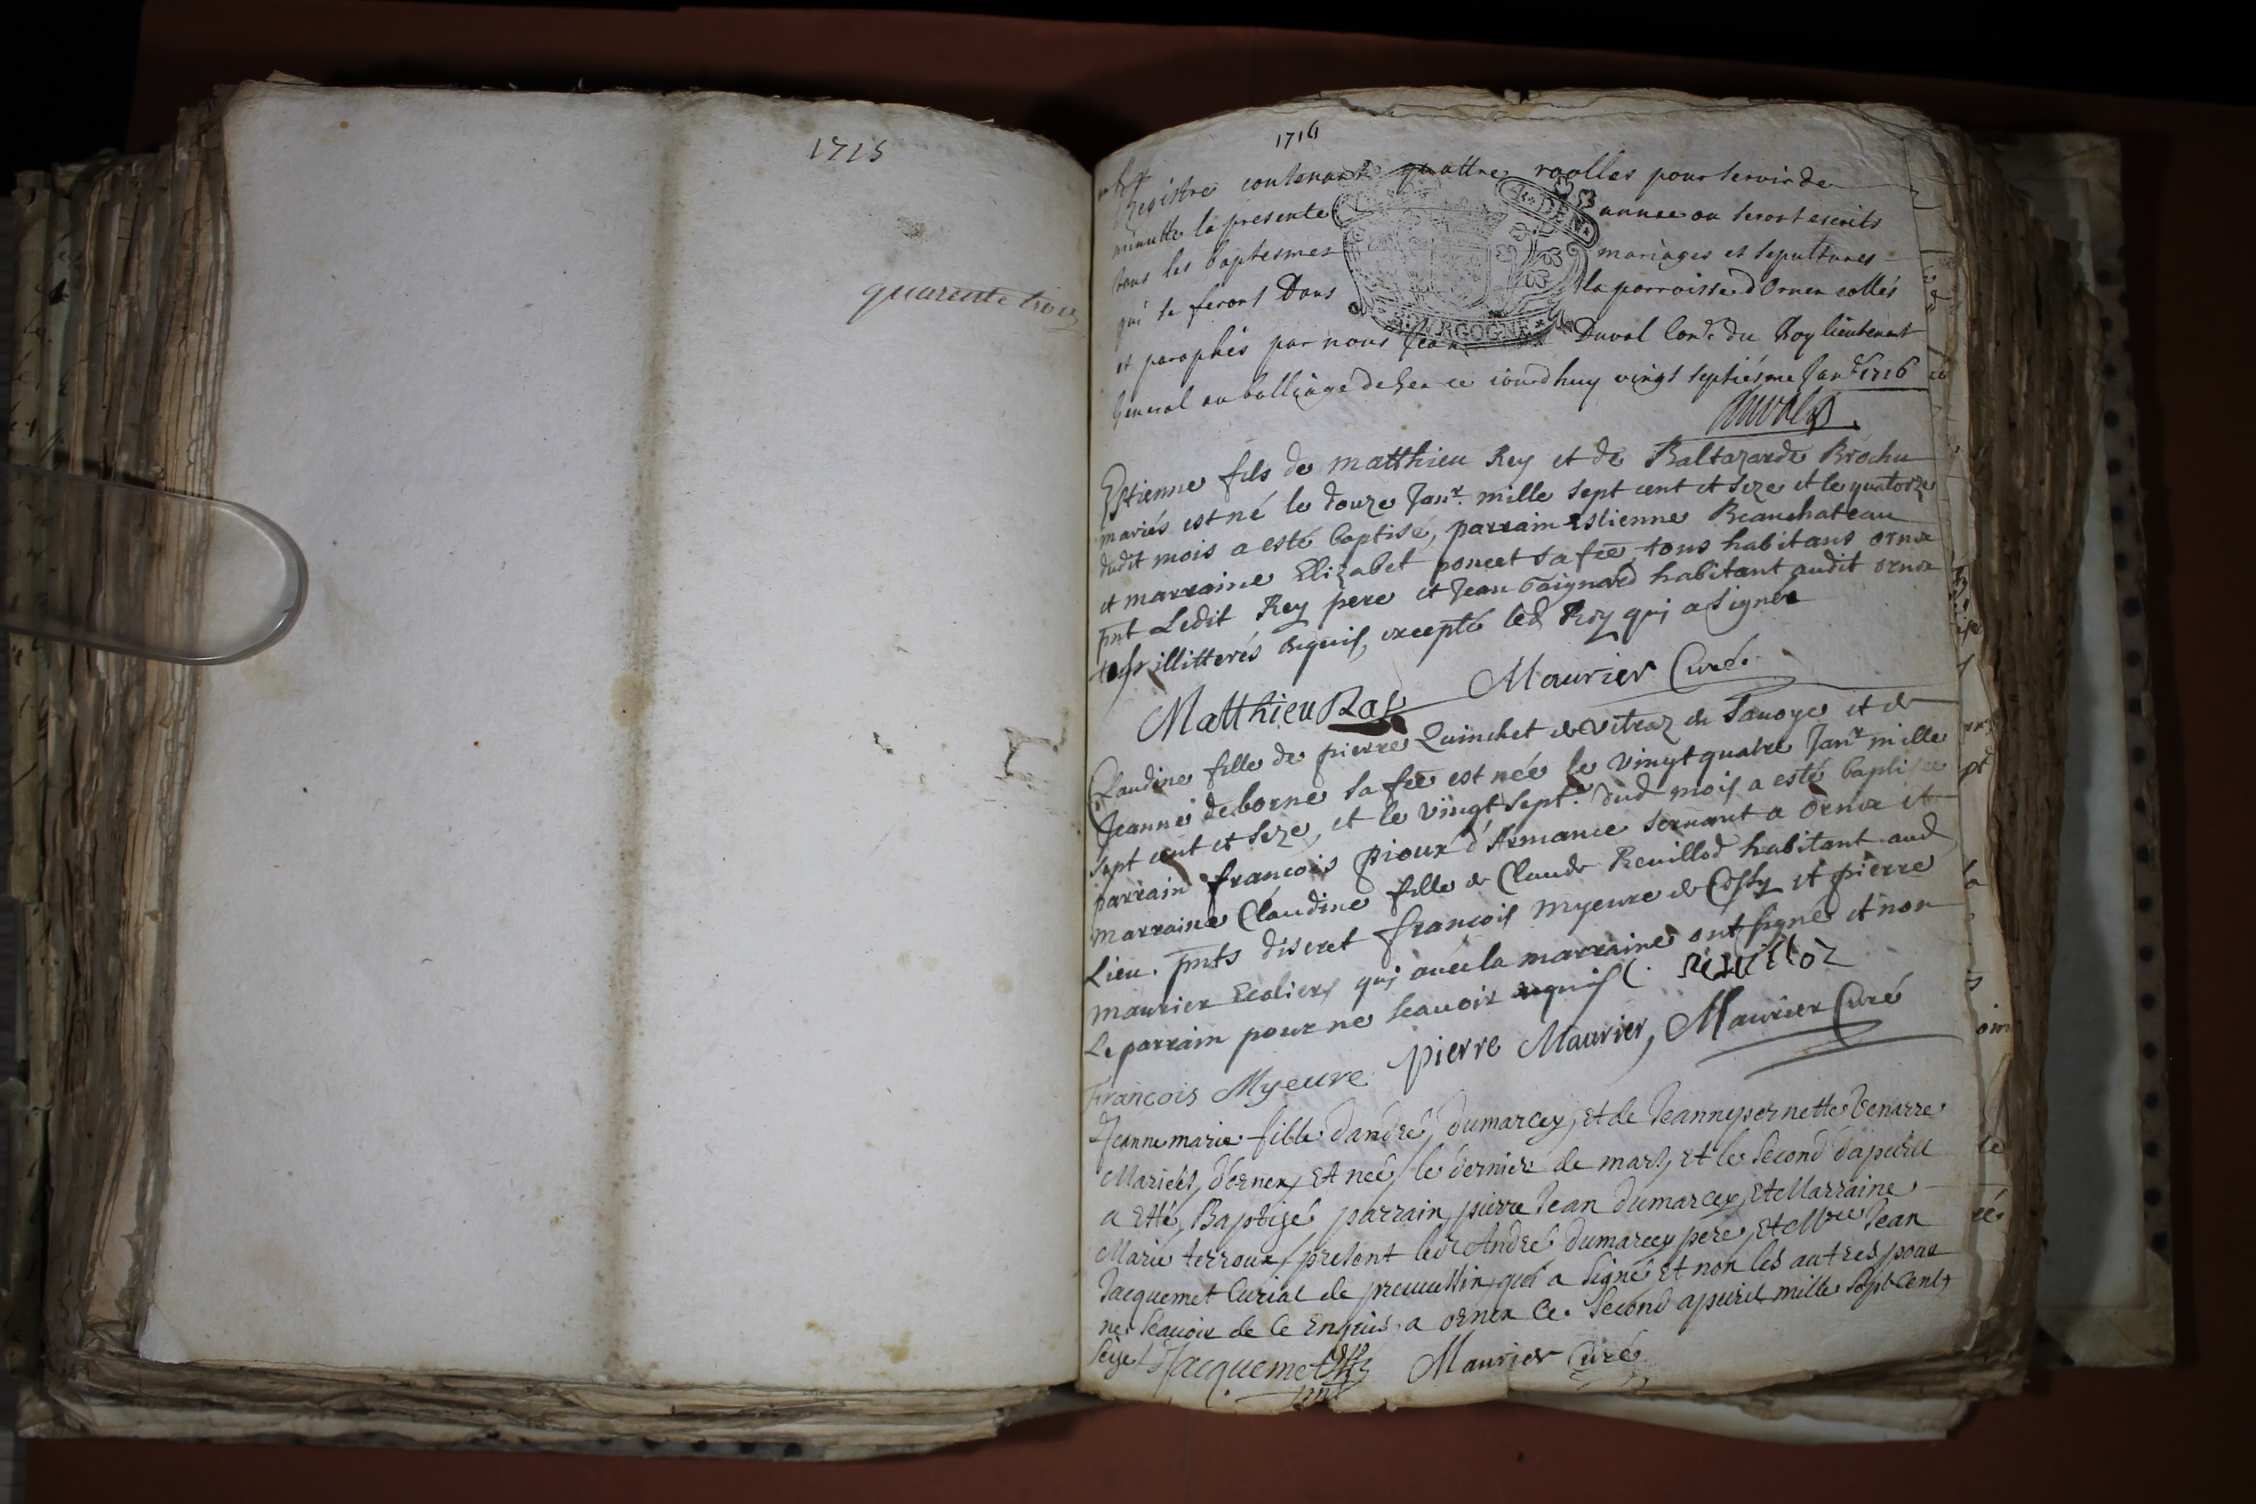 1715
quarente trois
1716
Registre contenant quattre roolles pour servir de
minutte la presente annee ou seront escrits
tous les baptesmes mariages et sepultures
qui se feront Dans la parroisse d'Ornex collés
et paraphés par nous Jean Duval Conr. du Roy lieutenant
General au balliage de Gex ce iourdhuy vingt septiésme Janr. 1716
BOURGOGNE
Duval
Estienne fils de Matthieu Rey et de Baltazarde Brochu
mariés est né le douze Janr. mille sept cent et seze et le quatorze
dudit mois a esté baptisé, parrain Estienne Beauchateau
et marraine Elizabet poncet sa fe tous habitans ornex
pnt Ledit Rey pere et Jean Gaignard habitant audit ornex
tous illitterés requis excepté led Rey qui a signé
Matthieu Ray Maurier Curé.
Claudine fille de pierre Quinchet de Vitraz en Savoye et de
Jeanne deborne sa fe est née le vingt quatre Janr mille
sept cent et seze, et le vingt sept. dud mois a esté baptisée
parrain françois pioux d'Armance servant a Ornex et
marraine Claudine fille de Claude Revillod habitant aud
Lieu. pnts discret françois Myeure de Cessy et pierre
maurier Ecoliers qui avec la marraine ont signé et non
Le parrain pour ne scavoir requis C. revilloz
François Myeure pierre Maurier, Maurier Curé
Jeanne marie fille d'andré dumarcey, et de Jeanne pernette Venarre
Mariés, d'ornex, Et neé le dernier de mars, et le second d'apuril
a Etté Baptizé parrain pierre Jean dumarcey, Et Marraine
Marie terroux, present led André dumarcey pere, Et Mre Jean
Jacquemet Curial de preuuessin, qui a signé Et non les autres pour
ne scavoir de ce Enquis a ornex ce second apuril mille sept cent
seize Jacquemet Maurier Curé